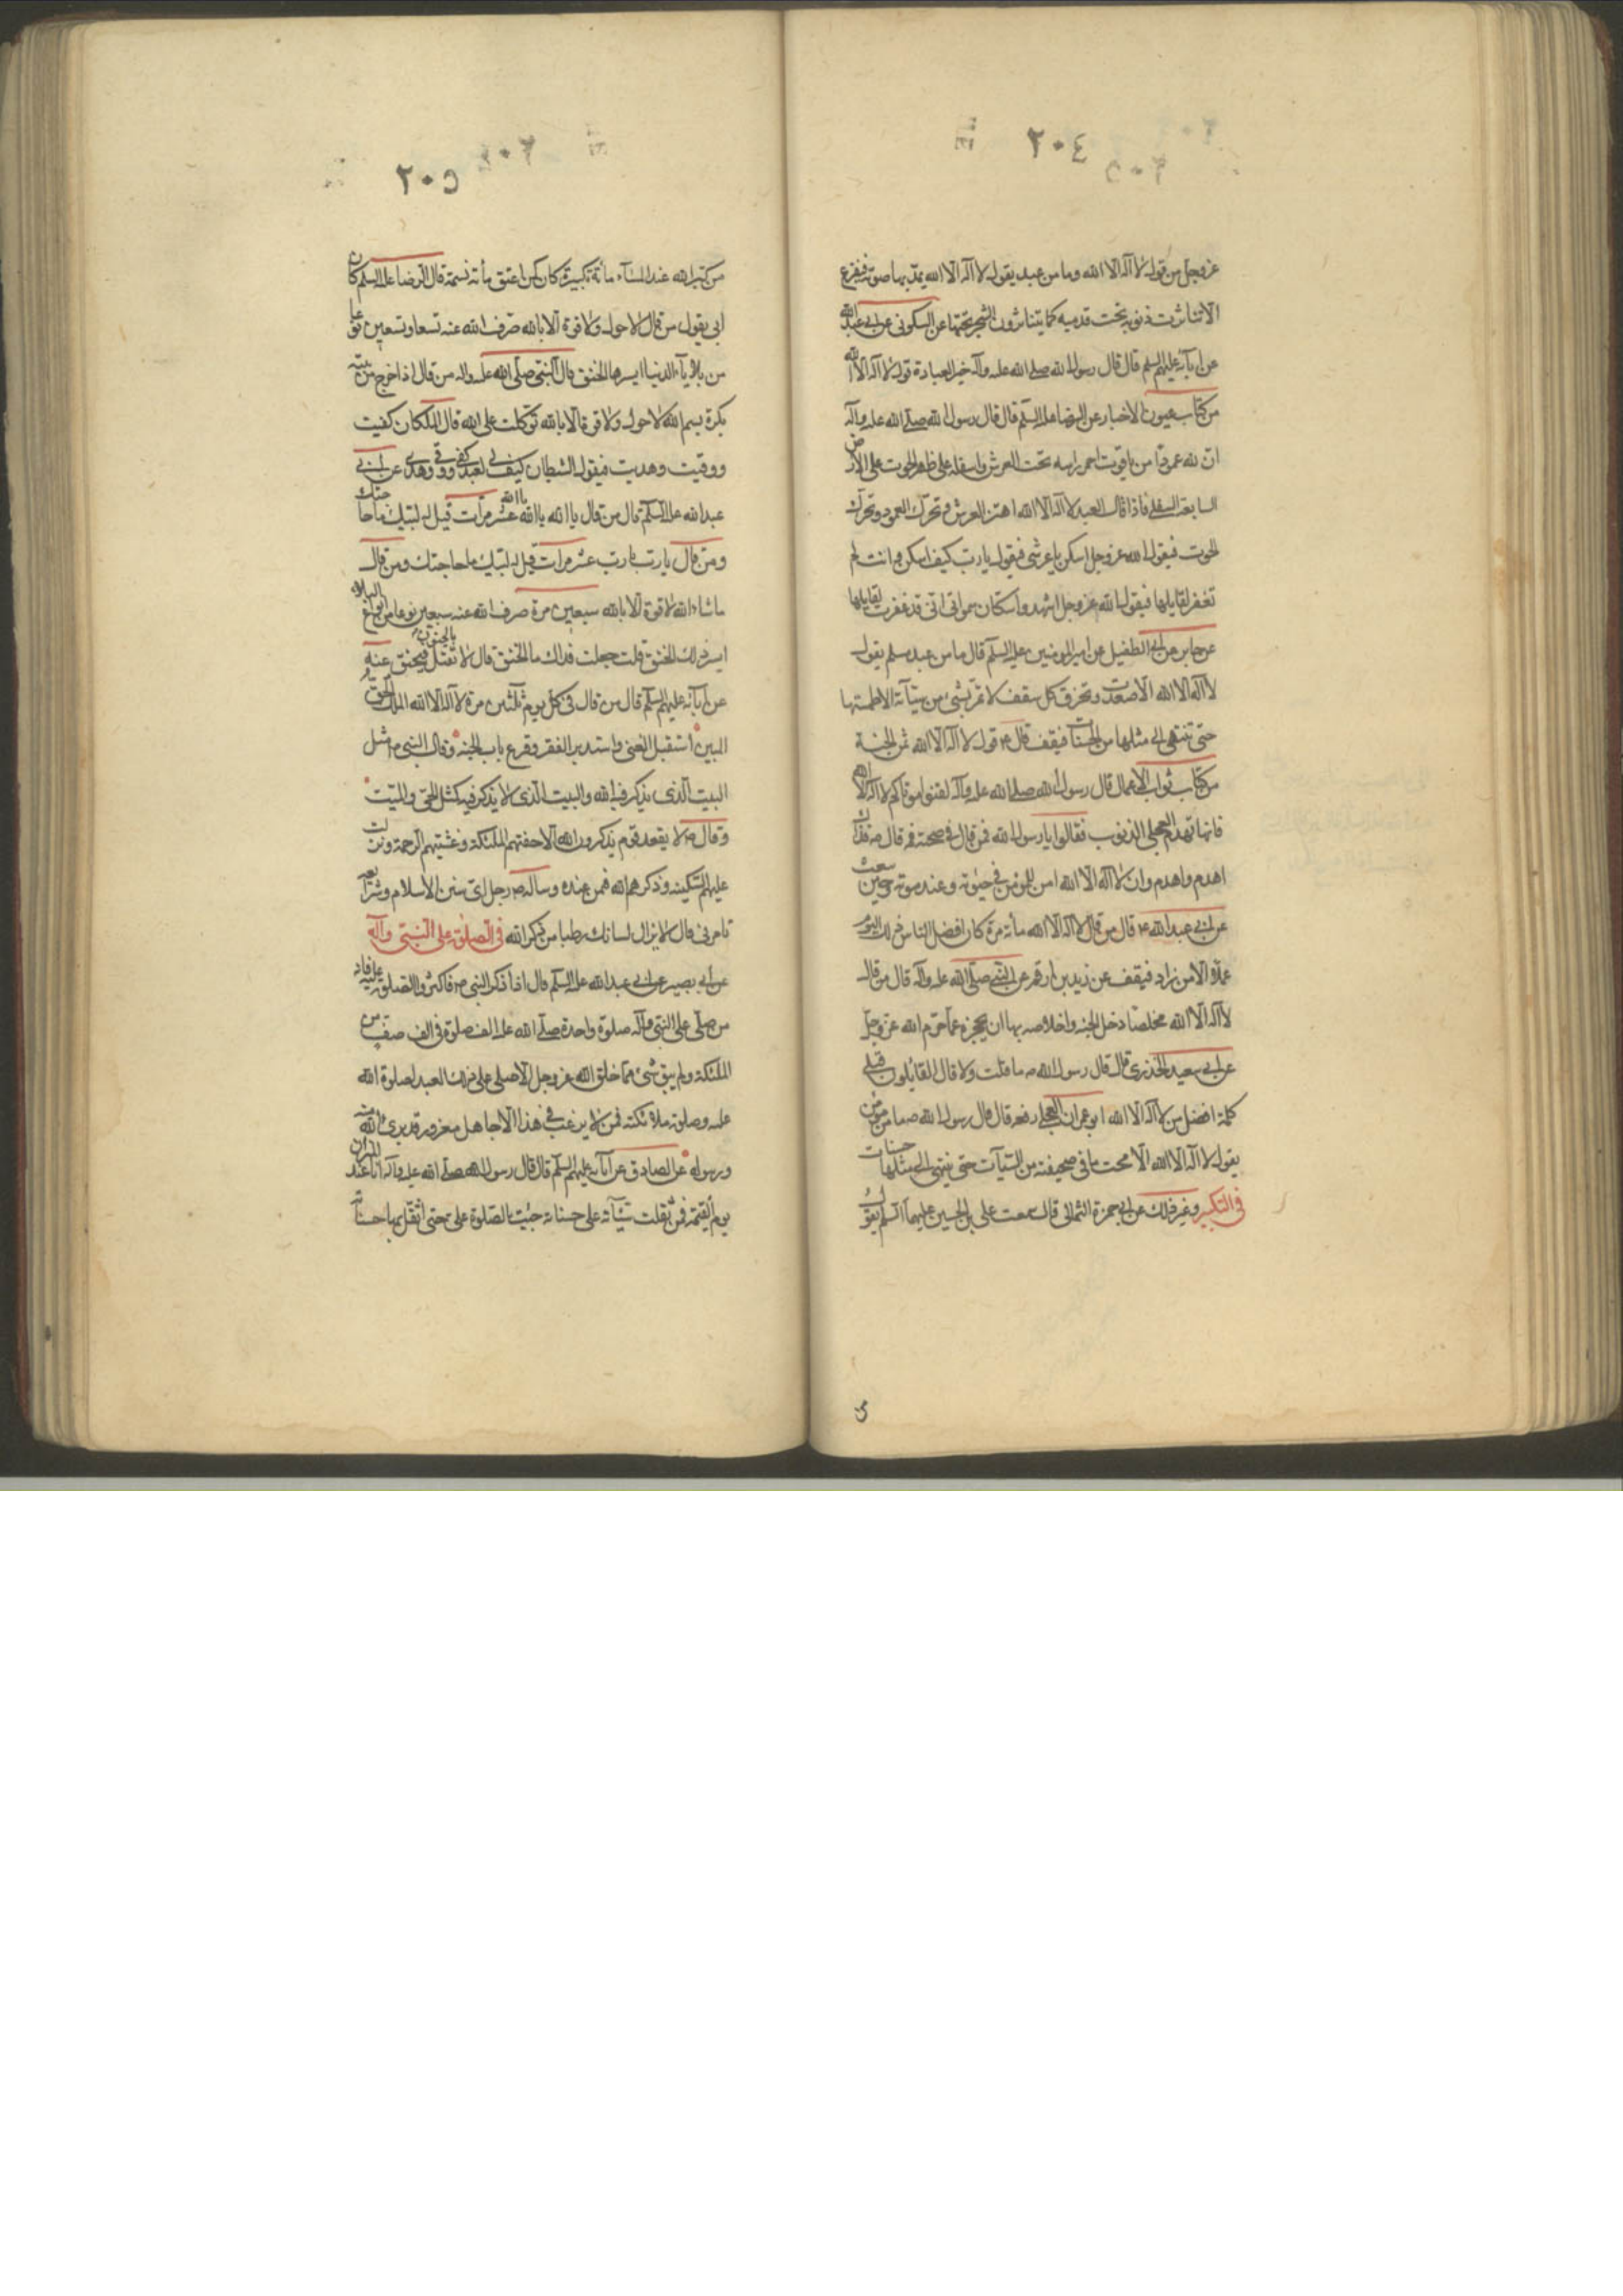 ٢٠٤
عز وجل من قول لا اله الا الله وما من عبد يقول لا اله الا الله يمد بها صوته فيفرغ
الا تناثرت ذنوبه تحت قدميه كما يتناثر ورق الشجر تحتها عن السكوني عن ابي عبد الله
عن ابآئه عليهم السلم قال قال رسول الله صلى الله عليه وآله خير العبادة قول لا اله الا الله
من كتاب عيون الاخبار عن الرضا عليه السلم قال قال رسول الله صلى الله عليه وآله
ان لله عمودا من ياقوت احمر راسه تحت العرش واسفله على ظهر الحوت على الارض
السابعة السفلى فاذا قال العبد لا اله الا الله اهتز العرش وتحرك العمود وتحرك
الحوت فيقول الله عز وجل اسكن يا عرشي فيقول يا رب كيف اسكن وانت لم
تغفر لقايلها فيقول الله عز وجل اشهدوا سكان سمواتي اني قد غفرت لقايلها
عن جابر عن ابي الطفيل عن امير المومنين عليه السلم قال ما من عبد مسلم يقول
لا اله الا الله الا صعدت وتخرق كل سقف لا تمر بشئ من سيآته الا طلستها
حتى تنتهى الى مثلها من الحسنات فيقف قال ع قول لا اله الا الله ثمن الجنة
من كتاب ثواب الاعمال قال رسول الله صلى الله عليه وآله لقنوا موتاكم لا اله الا الله
فانها تهدم الذنوب فقالوا يا رسول الله فمن قال في صحته فقال ص فذاك
اهدم واهدم وان لا اله الا الله امن للمومن في حيوته وعند موته وحين يبعث
عن ابي عبد الله ع قال من قال لا اله الا الله مأئة مرة كان افضل الناس ذلك اليوم
عملا الا من زاد فيقف عن زيد بن ارقم عن النبي صلى الله عليه وآله قال من قال
لا اله الا الله مخلصا دخل الجنة واخلاصه بها ان يحجزه عما حرم الله عز وجل
عن ابي سعيد الخدري قال قال رسول الله ص ما قلت ولا قال القائلون قبلي
كلمة افضل من لا اله الا الله ابو عمران العجلي رفعه قال قال رسول الله ص ما من مومن
يقول لا اله الا الله الا محت ما في صحيفته من السيآت حتى ينتهى الى مثلها حسنات
في التكبير وغير ذلك عن ابي حمزة الثمالي قال سمعت علي بن الحسين عليهما السلم يقول
٢٠٥
من كبر الله عند المسآء مائة تكبيرة كان كمن اعتق مأئة نسمة قال الرضا عليه السلم كان
ابي يقول من قال لا حول ولا قوة الا بالله صرف الله عنه تسعا وتسعين نوعا
من بلايآء الدنيا ايسرها الخنق قال النبي صلى الله عليه واله من قال اذا خرج من بيته
بكرة بسم الله لا حول ولا قوة الا بالله توكلت على الله قال الملكان كفيت
ووقيت وهديت فيقول الشيطان كيف لي بعبد كفى ووقى وهدى عن ابي
عبد الله عليه السلم قال من قال يا الله يا الله يا الله عشر مرات قيل له لبيك ما حاجتك
ومن قال يا رب يا رب عشر مرات قيل له لبيك ما حاجتك ومن قال
ما شاء الله لا قوة الا بالله سبعين مرة صرف الله عنه سبعين نوعا من انواع البلاء
ايسر ذلك الخنق قلت جعلت فداك ما الخنق قال لا تقتل بالجنون فيخنق عنه
عن ابآئه عليهم السلم قال من قال في كل يوم ثلثين مرة لا اله الا الله الملك الحق
المبين استقبل الغنى واستدبر الفقر وقرع باب الجنة وقال النبي ص مثل
البيت الذي يذكر فيه الله والبيت الذي لا يذكر فيه كمثل الحي والميت
وقال ص لا يقعد قوم يذكرون الله الا حفتهم الملئكة وغشيتهم الرحمة ونزلت
عليهم السكينه وذكرهم الله فيمن عنده وساله ص رجل اي سنن الاسلام وشرايعه
تامرني قال لا يزال لسانك رطبا من ذكر الله في الصلوة على النبي وآله
عن ابي بصير عن ابي عبد الله عليه السلم قال اذا ذكر النبي ص فاكثروا الصلوة عليه فانه
من صلى على النبي وآله صلوة واحدة صلى الله عليه الف صلوة في الف صف من
الملئكة ولم يبق شئ مما خلق الله عز وجل الا صلى على ذلك العبد لصلوة الله
عليه وصلوة ملائكته فمن لا يرغب في هذا الا جاهل مغرور قد برئ الله منه
ورسوله عن الصادق عن آبائه عليهم السلم قال قال رسول الله صلى الله عليه وآله انا عند الميزان
يوم القيمة فمن ثقلت سيآته على حسناته جئت بالصلوة علي حتى اثقل بها حسناته